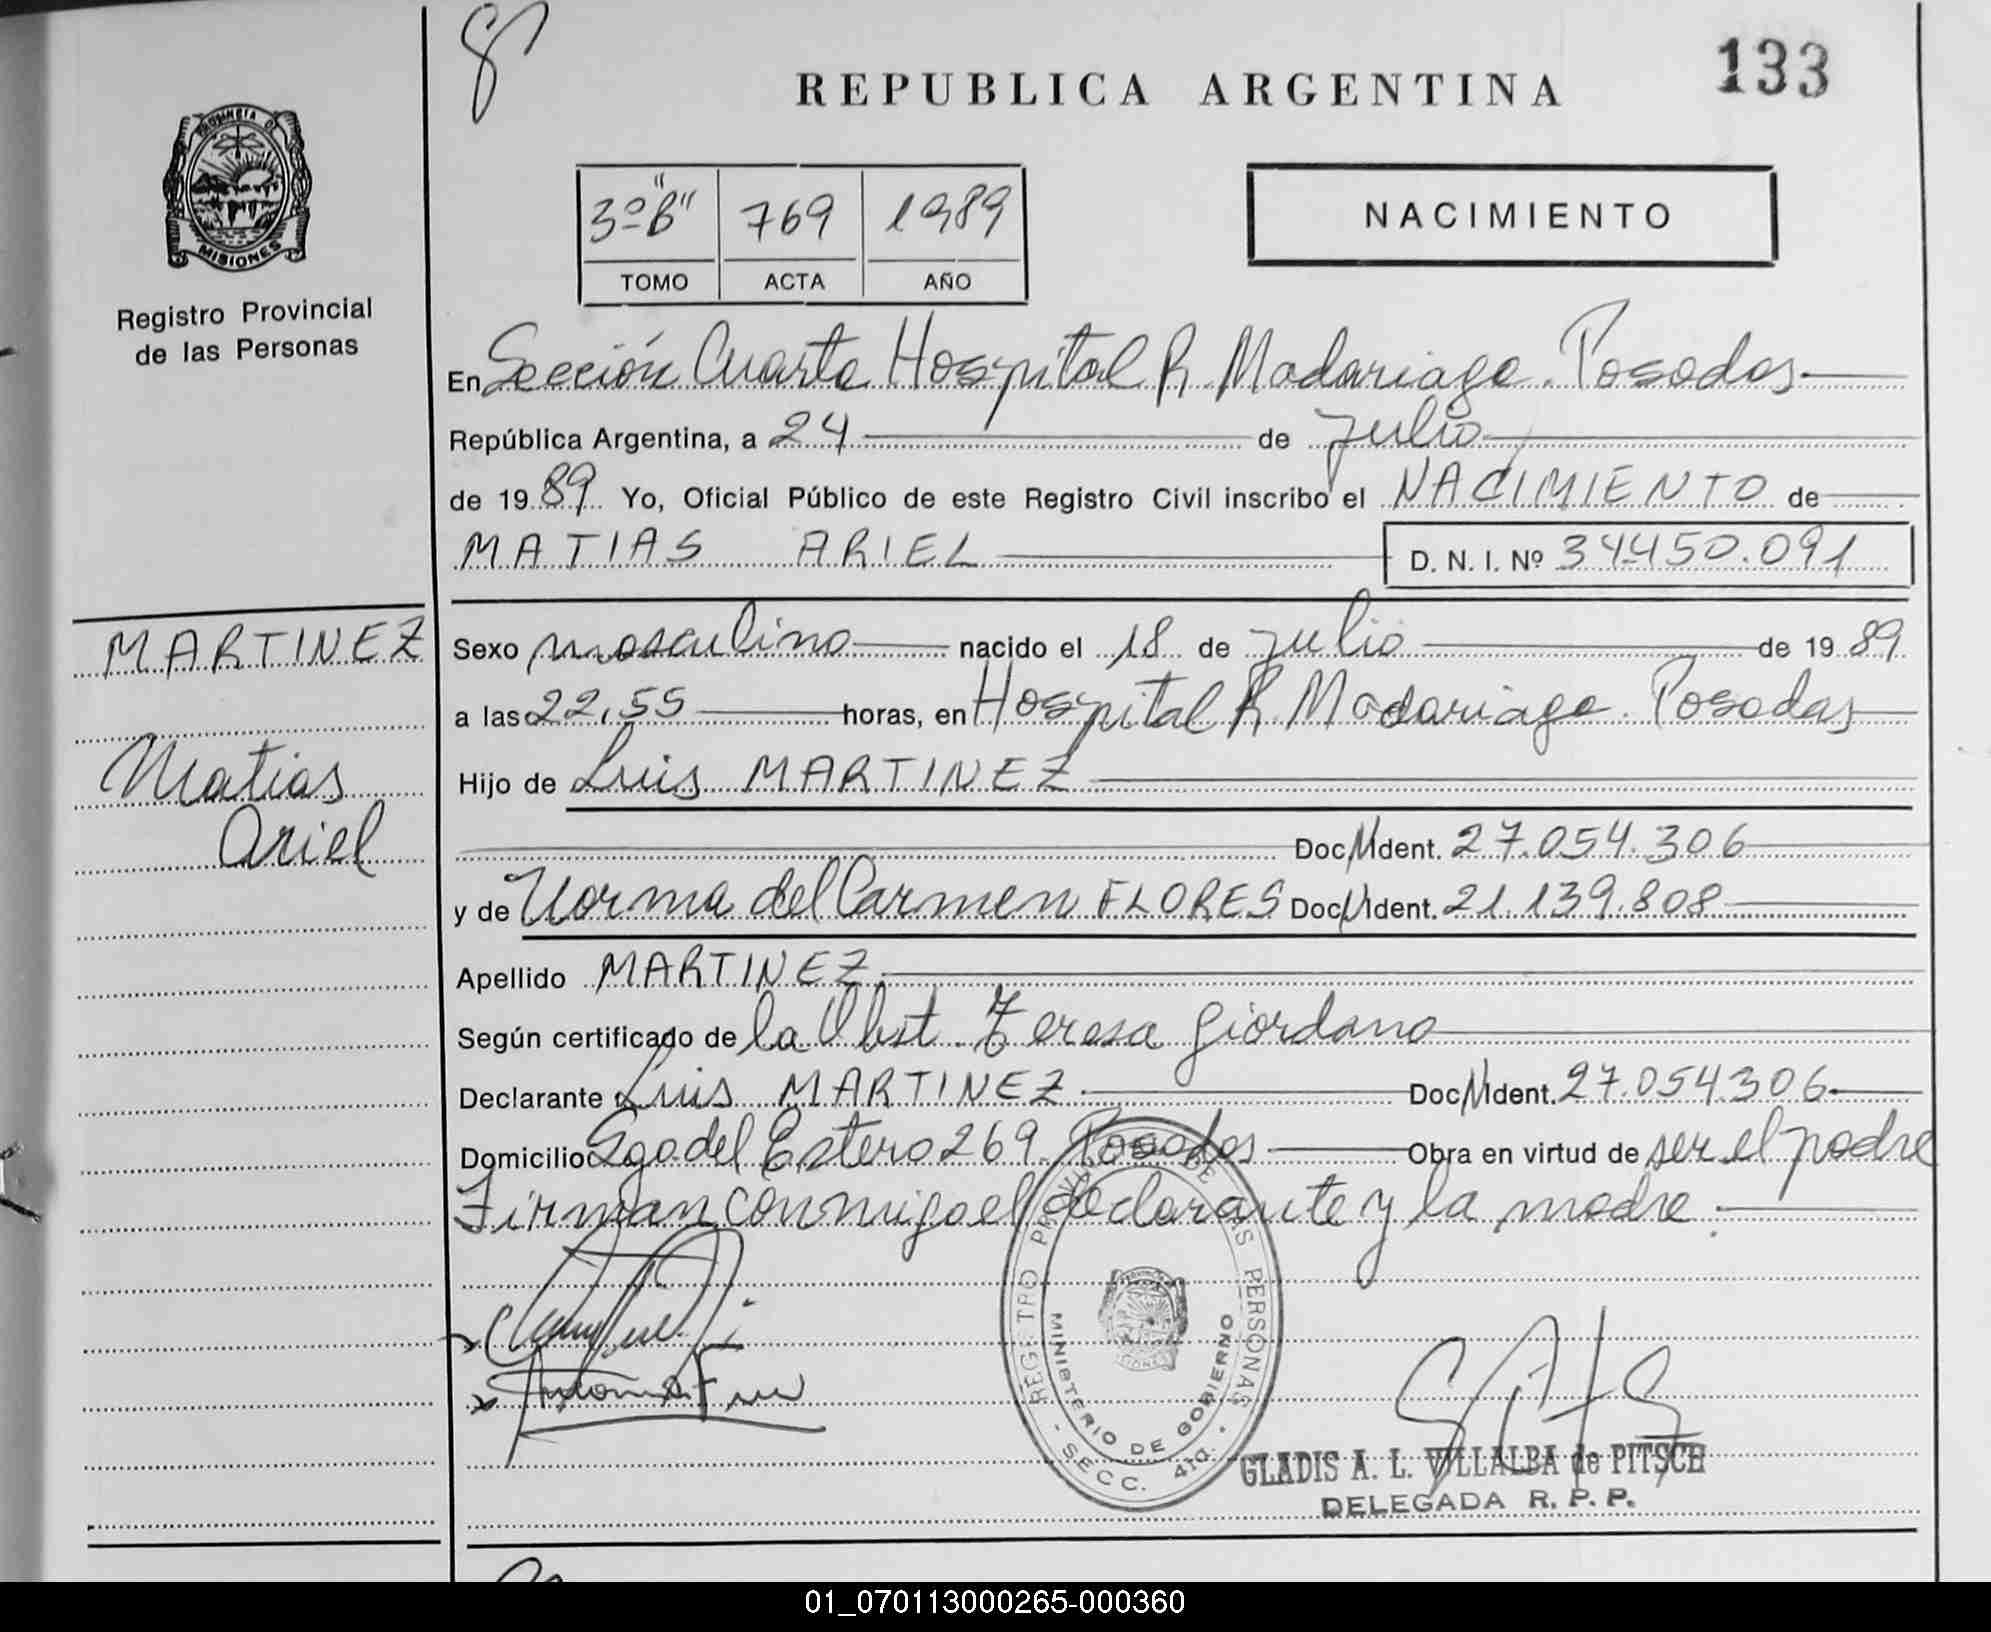 133
REPUBLICA ARGENTINA
PROVINCIA DE
MISIONES
Registro Provincial
de las Personas
3º "B" 769 1989
TOMO ACTA AÑO
NACIMIENTO
En Sección Cuarta Hospital R. Madariaga. Posadas
República Argentina, a 24 de Julio
de 1989 Yo, Oficial Público de este Registro Civil inscribo el NACIMIENTO de
MATIAS ARIEL D. N. I. Nº 34.450.091
MARTINEZ
Matias
Ariel
Sexo masculino nacido el 18 de Julio de 1989
a las 22,55 horas, en Hospital R. Madariaga. Posadas
Hijo de Luis MARTINEZ
Doc. Ident. 27.054.306
y de Norma del Carmen FLORES Doc. Ident. 21.139.808
Apellido MARTINEZ
Según certificado de la Obst. Teresa Giordano
Declarante Luis MARTINEZ Doc. Ident. 27.054.306
Domicilio Sgo del Estero 269. Posadas Obra en virtud de ser el padre
Firman conmigo el declarante y la madre.
REGISTRO PROVINCIAL DE LAS PERSONAS
MINISTERIO DE GOBIERNO
SECC. 4ta.
GLADIS A. L. VILLALBA de PITSCH
DELEGADA R. P. P.
01_070113000265-000360